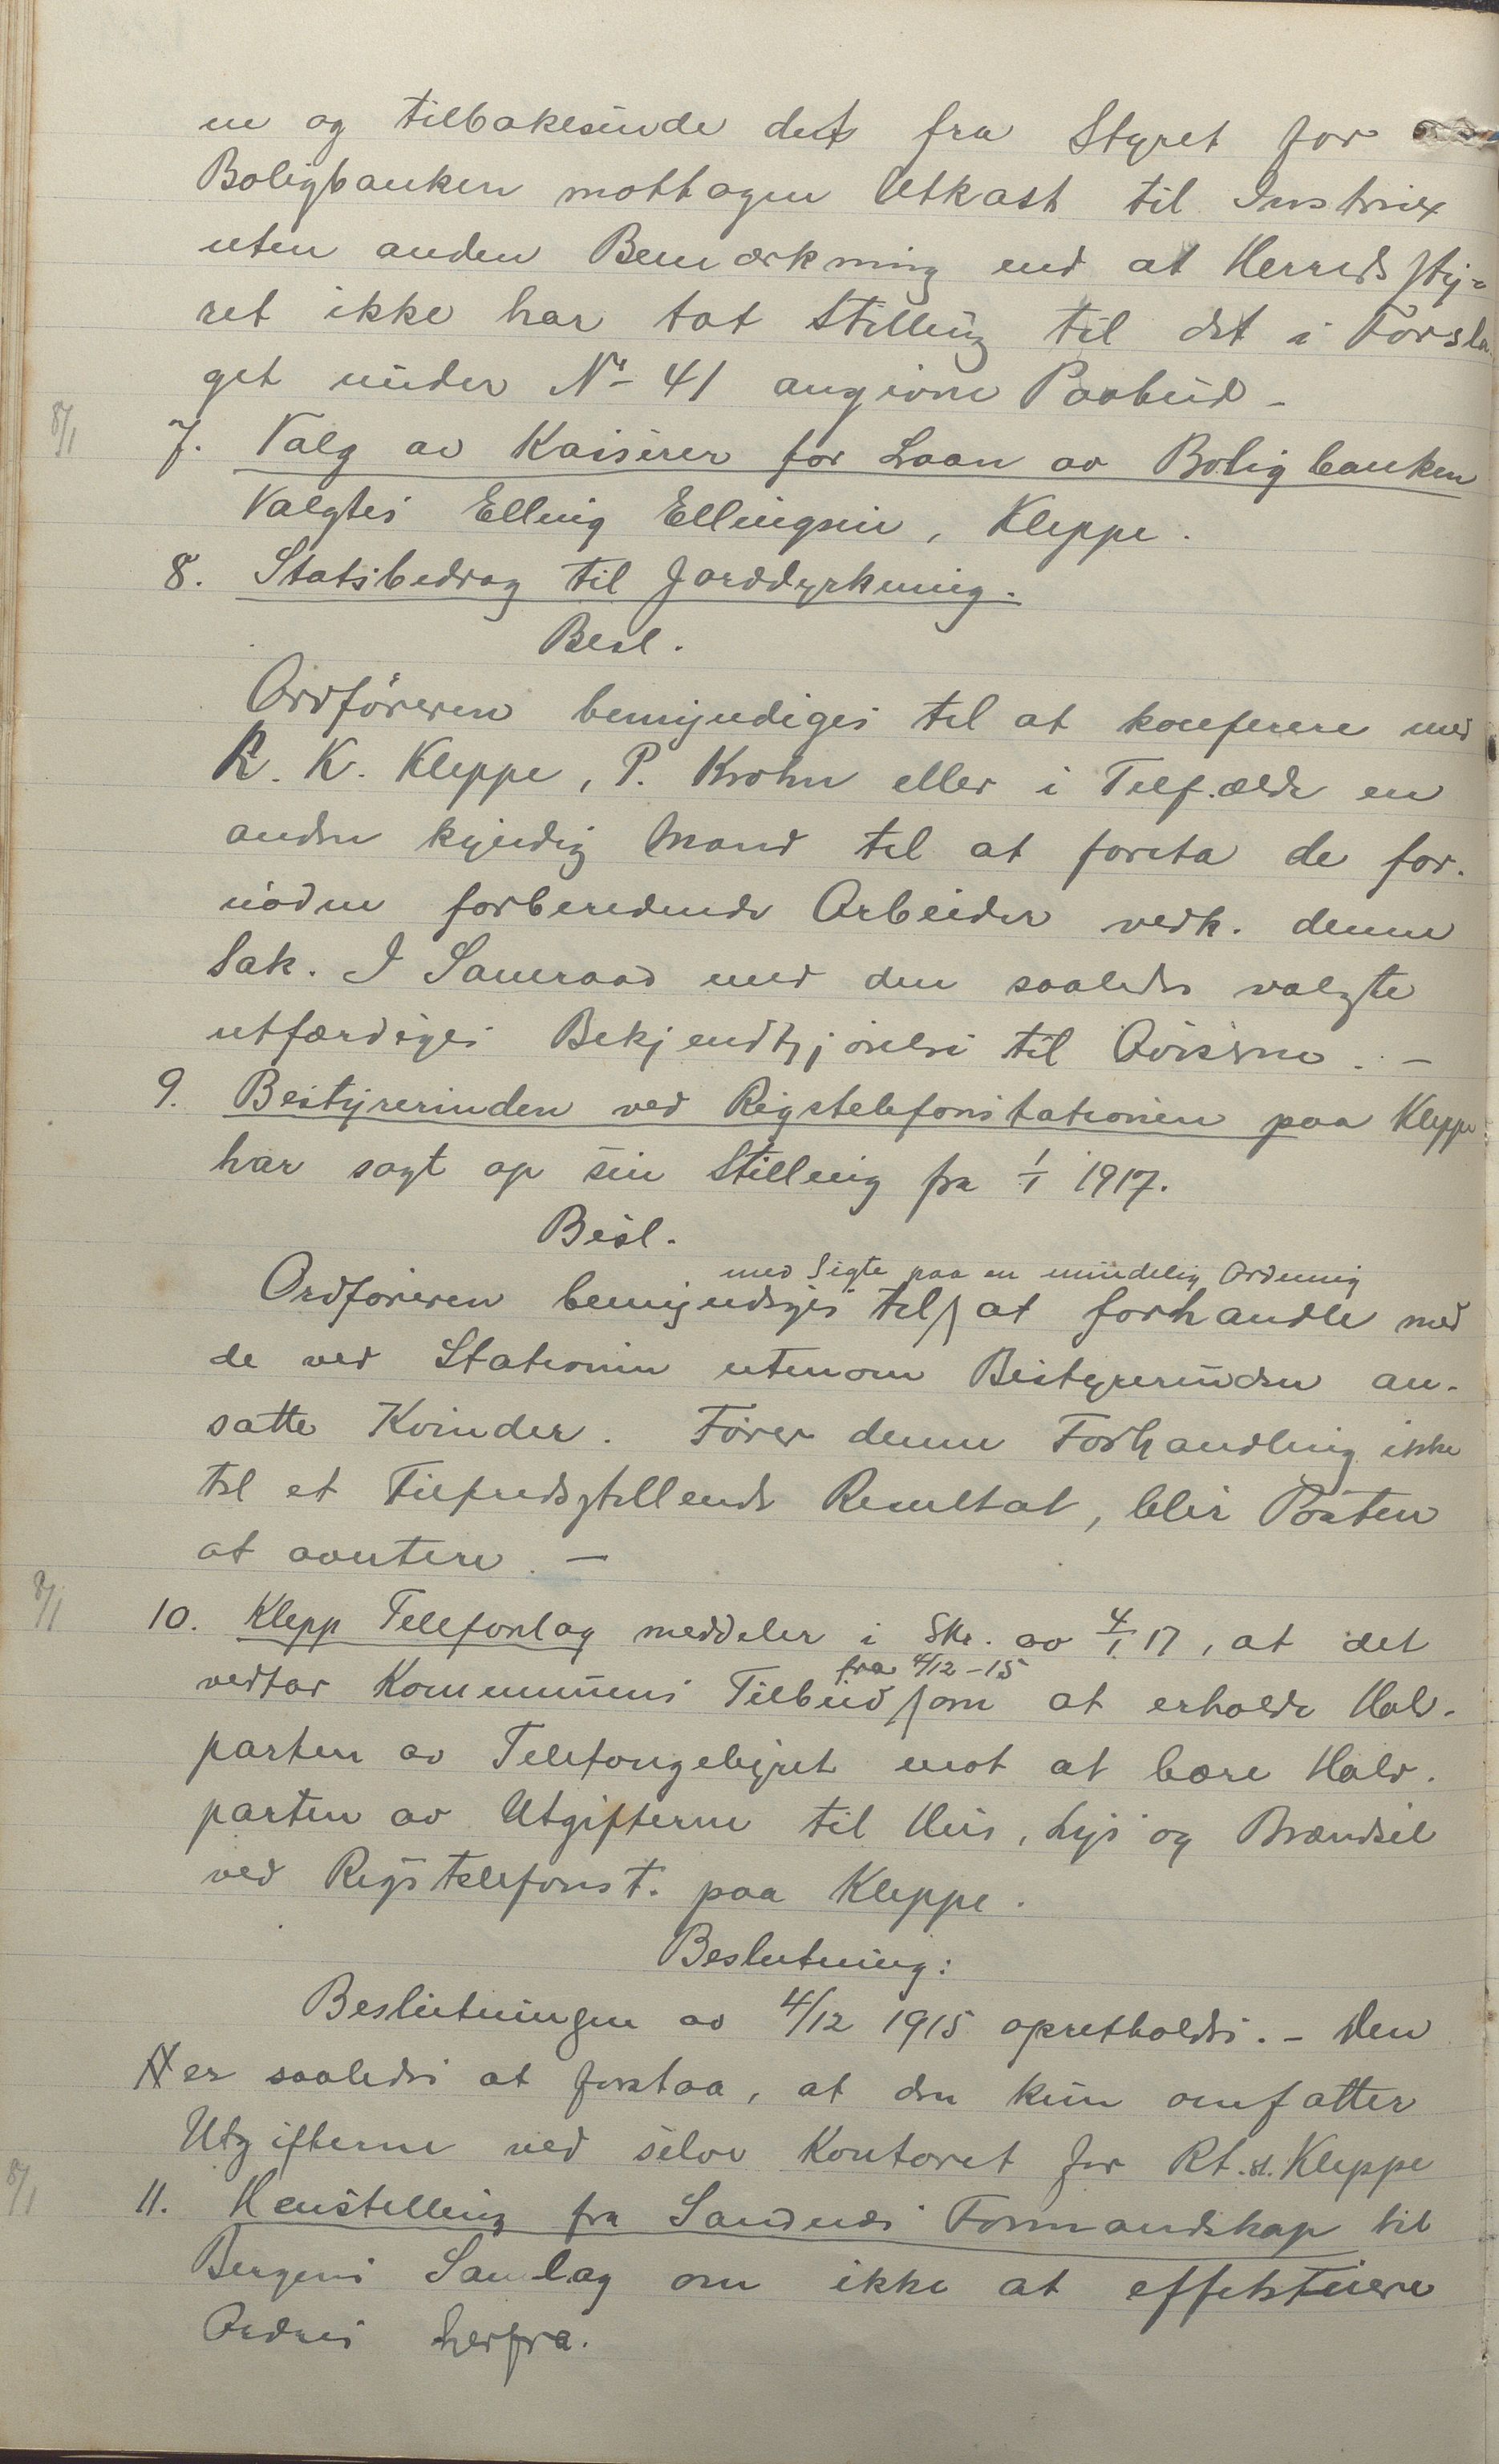 ne og tilbakesende det fra Styret for
Boligbanken mottagne Utkast til Instrux
uten anden Bemærkning end at Herredssty-
ret ikke har tat Stilling til det i Forsla-
get under No 41 angivne Paabud –
8/1
7. Valg av Kasserer for Laan av Boligbanken
Valgtes Elling Ellingsen, Kleppe.
8. Statsbidrag til Jorddyrkning.
Besl.
Ordföreren bemyndiges til at konferere med
R. K. Kleppe, P. Krohn eller i Tilfælde en
anden kyndig Mand til at foreta de for-
nödne forberedende Arbeider vedk. denne
Sak. I Samraad med den saaledes valgte
utfærdiges Bekjendtgjörelse til Aviserne. –
9. Bestyrerinden ved Rigstelefonstationen paa Kleppe
har sagt op sin Stilling fra 1/1 1917.
Besl.
med Sigte paa en mindelig Ordning
Ordföreren bemyndiges til at forhandle med
de ved Stationen utenom Bestyrerinden an-
satte Kvinder. Förer denne Forhandling ikke
til et Tilfredsstillende Resultat, blir Posten
at avertere. –
8/1
10. Klepp Telefonlag meddeler i Skr. av 4/1 17, at det
fra 4/12 – 15
vedtar Kommunens Tilbud om at erholde Halv-
parten av Telefongebyret mot at bære Halv-
parten av Utgifterne til Hus, Lys og Brændsel
ved Rigstelefonst. paa Kleppe.
Beslutning:
Beslutningen av 4/12 1915 opretholdes. – Den
er saaledes at forstaa, at den kun omfatter
Utgifterne ved selve Kontoret for Rt.st. Kleppe
8/1
11. Henstilling fra Sandnes Formandskap til
Bergens Samlag om ikke at effektuere
Ordres herfra.